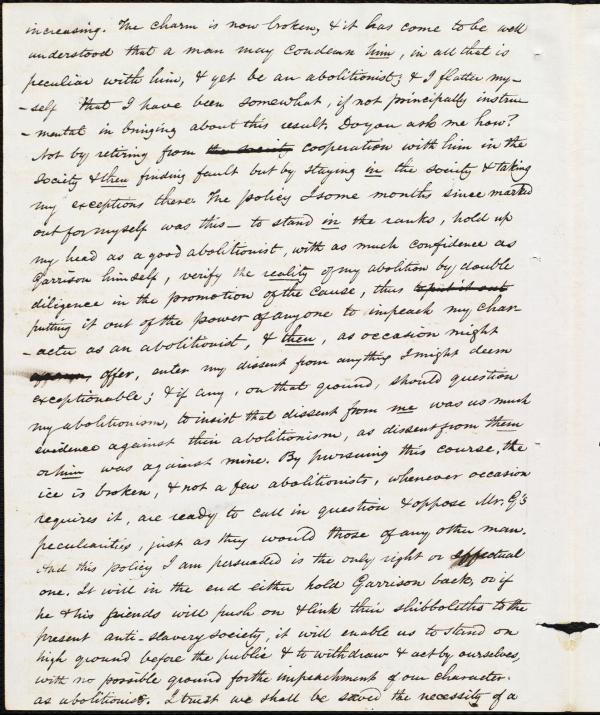 increasing. The charm is now broken, & it has come to be well
understood that a man may condemn him, in all that is
peculiar with him, & yet be an abolitionist; & I flatter my-
-self that I have been somewhat, if not principally instru
-mental in bringing about this result. Do you ask me how?
Not by retiring from the society cooperation with him in the
society & then finding fault but by staying in the society & taking
my exceptions there. The policy I some months since marked
out for myself was this – to stand in the ranks, hold up
my head as a good abolitionist, with as much confidence as
Garrison himself, verify the reality of my abolition by double
diligence in the promotion of the cause, thus to put it out
putting it out of the power of anyone to impeach my char
-acter as an abolitionist, & then, as occasion might
offer, enter my dissent from anything I might deem
exceptionable; & if any, on that ground, should question
my abolitionism, to insist that dissent from me was as much
evidence against their abolitionism, as dissent from them
or him was against mine. By pursuing this course, the
ice is broken, & not a few abolitionists, whenever occasion
requires it, are ready to call in question & oppose Mr. G's
peculiarities, just as they would those of any other man.
And this policy I am persuaded is the only right or effectual
one. It will in the end either hold Garrison back, or if
he & his friends will push on & link their shibboleths to the
present anti-slavery society, it will enable us to stand on
high ground before the public & to withdraw & act by ourselves,
with no possible ground for the impeachment of our character
as abolitionists. I trust we shall be saved the necessity of a